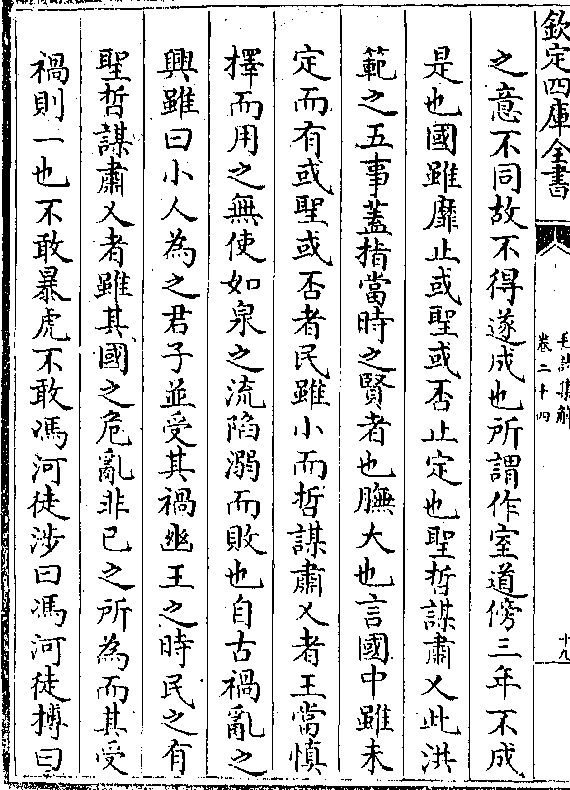 欽定四庫全書
毛詩集解
卷二十四
十九
之意不同故不得遂成也所謂作室道傍三年不成
是也國雖靡止或聖或否止定也聖哲謀肅乂此洪
範之五事蓋指當時之賢者也膴大也言國中雖未
定而有或聖或否者民雖小而哲謀肅乂者王當慎
擇而用之無使如泉之流陷溺而敗也自古禍亂之
興雖曰小人為之君子並受其禍幽王之時民之有
聖哲謀肅乂者雖其國之危亂非已之所為而其受
禍則一也不敢暴虎不敢馮河徒涉曰馮河徒搏曰